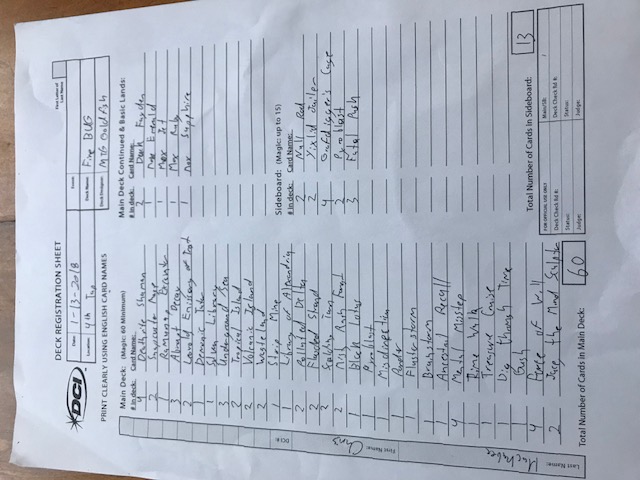 DCI
DECK REGISTRATION SHEET
First Letter of Last Name
Date: 1-13-2018
Event:
Location: 4th Tap
Deck Name: Fire BUG
Deck Designer: MTG Goldfish
PRINT CLEARLY USING ENGLISH CARD NAMES
Main Deck: (Magic: 60 Minimum)
# in deck: Card Name:
4 Deathrite Shaman
2 Snapcaster Mage
1 Ramunap Excavator
3 Abrupt Decay
2 Leovold Emissary of Trest
1 Demonic Tutor
1 Sylvan Library
3 Underground Sea
2 Tropical Island
2 Volcanic Island
2 Wasteland
1 Strip Mine
1 Library of Alexandria
2 Polluted Delta
2 Flooded Strand
2 Scalding Tarn
2 Misty Rain Forest
1 Black Lotus
1 Pyroblast
1 Misdirection
1 Ponder
1 Flusterstorm
1 Brainstorm
1 Ancestral Recall
4 Mental Misstep
1 Time Walk
1 Treasure Cruise
1 Dig through Time
1 Gush
4 Force of Will
2 Jace, the Mind Sculptor
Total Number of Cards in Main Deck: 60
Main Deck Continued & Basic Lands:
# in deck: Card Name:
2 Dack Fayden
1 Mox Emerald
1 Mox Jet
1 Mox Ruby
1 Mox Sapphire
Sideboard: (Magic: up to 15)
# in deck: Card Name:
2 Null Rod
2 Yixlid Jailer
4 Grafdigger's Cage
2 Pyroblast
3 Fatal Push
Total Number of Cards in Sideboard: 13
FOR OFFICIAL USE ONLY
Main/SB: /
Deck Check Rd #:
Deck Check Rd #:
Status:
Status:
Judge:
Judge:
DCI #:
First Name: Chris
Last Name: